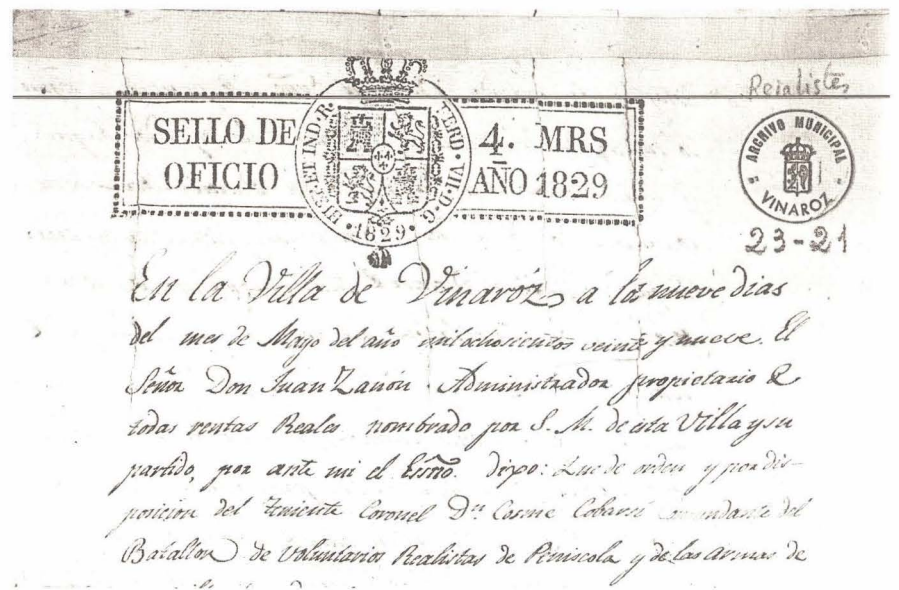 Reialistes
SELLO DE
OFICIO
HISP.ET IND.R.
FERD.VII.D.G.
.1829.
4. MRS
AÑO 1829
ARCHIVO MUNICIPAL
VINAROZ
23-21
En la Villa de Vinaróz a la nueve dias
del mes de Mayo del año mil ochosientos veinte y nueve. El
Señor Don Juan Zanón Administrador propietario de
todas rentas Reales nombrado por S. M. de esta Villa y su
partido, por ante mi el Esño. dixo: Que de orden y por dis-
posicion del Teniente Coronel Dn. Cosme Comandante del
Batallon de Voluntarios Realistas de Peniscola y de las armas de